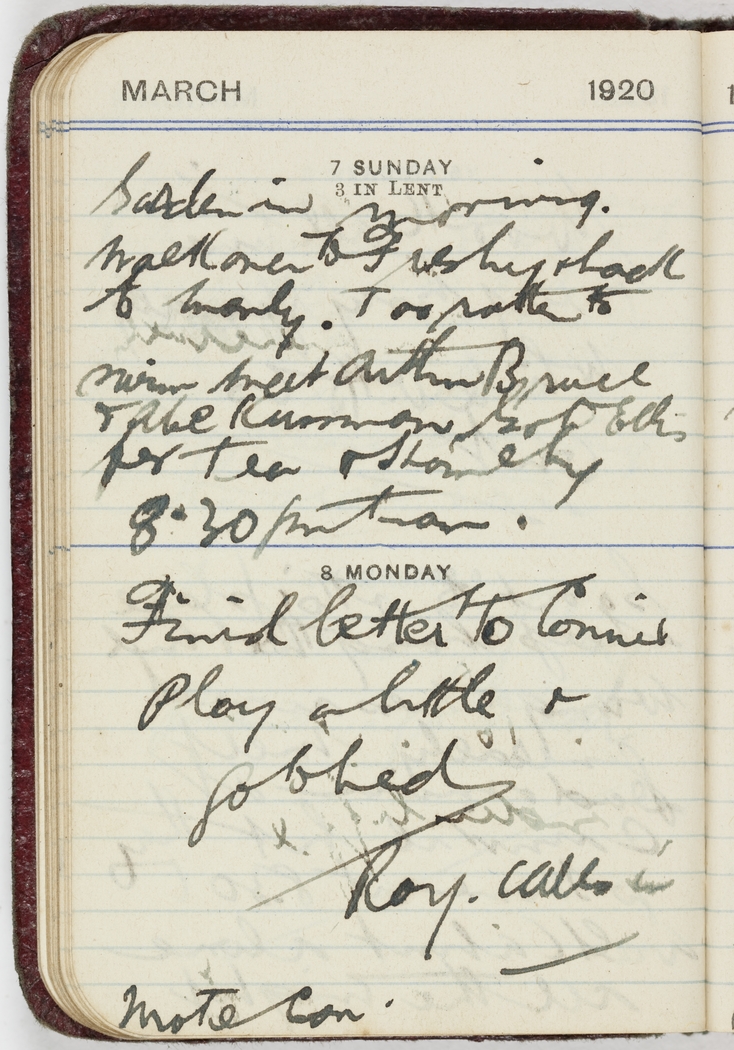 MARCH 1920
1
7 SUNDAY
3 IN LENT
Garden in morning.
Walk over to Freshy & back
to Manly. Too rotten to
swim meet Arthur Bruce
& Abe Ellis
for Tea & Home by
8.30 pm tram.
8 MONDAY
Finish letter to Connie
Play a little &
go to bed
Roy. calls in
Wrote Con.